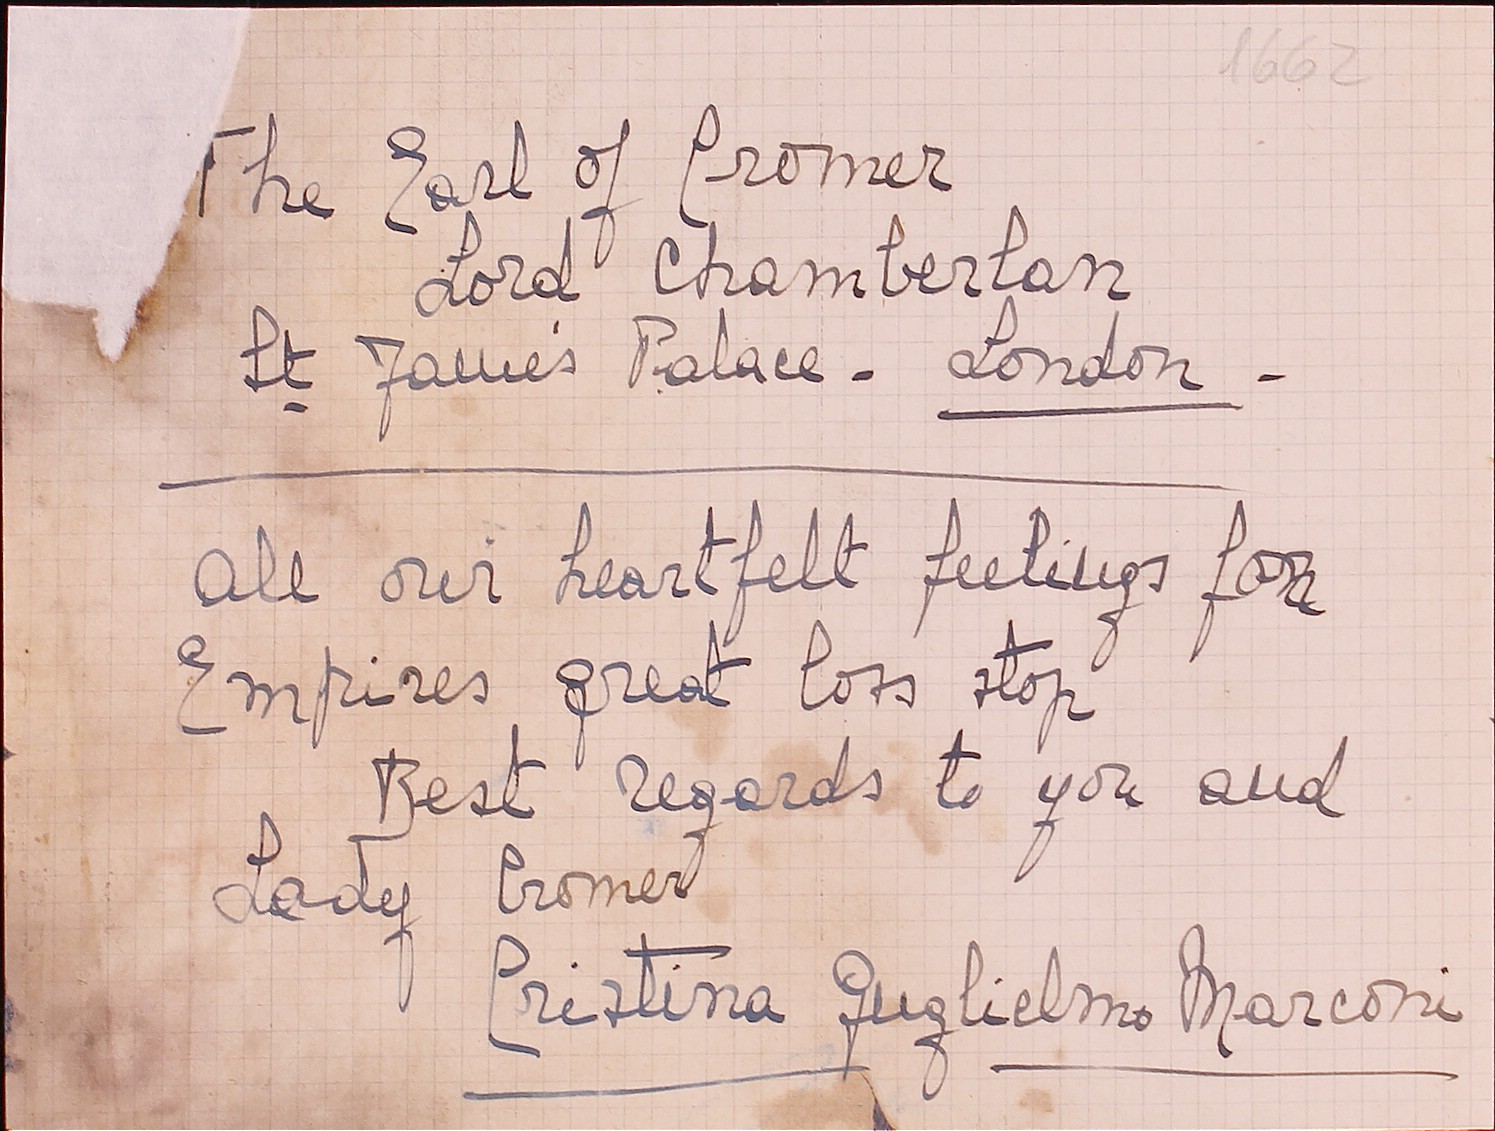 1662
The Earl of Cromer
Lord Chamberlan
St James Palace - London -
All our heartfelt feelings for
Empires great loss stop
Best regards to you and
Lady Cromer
Cristina Guglielmo Marconi